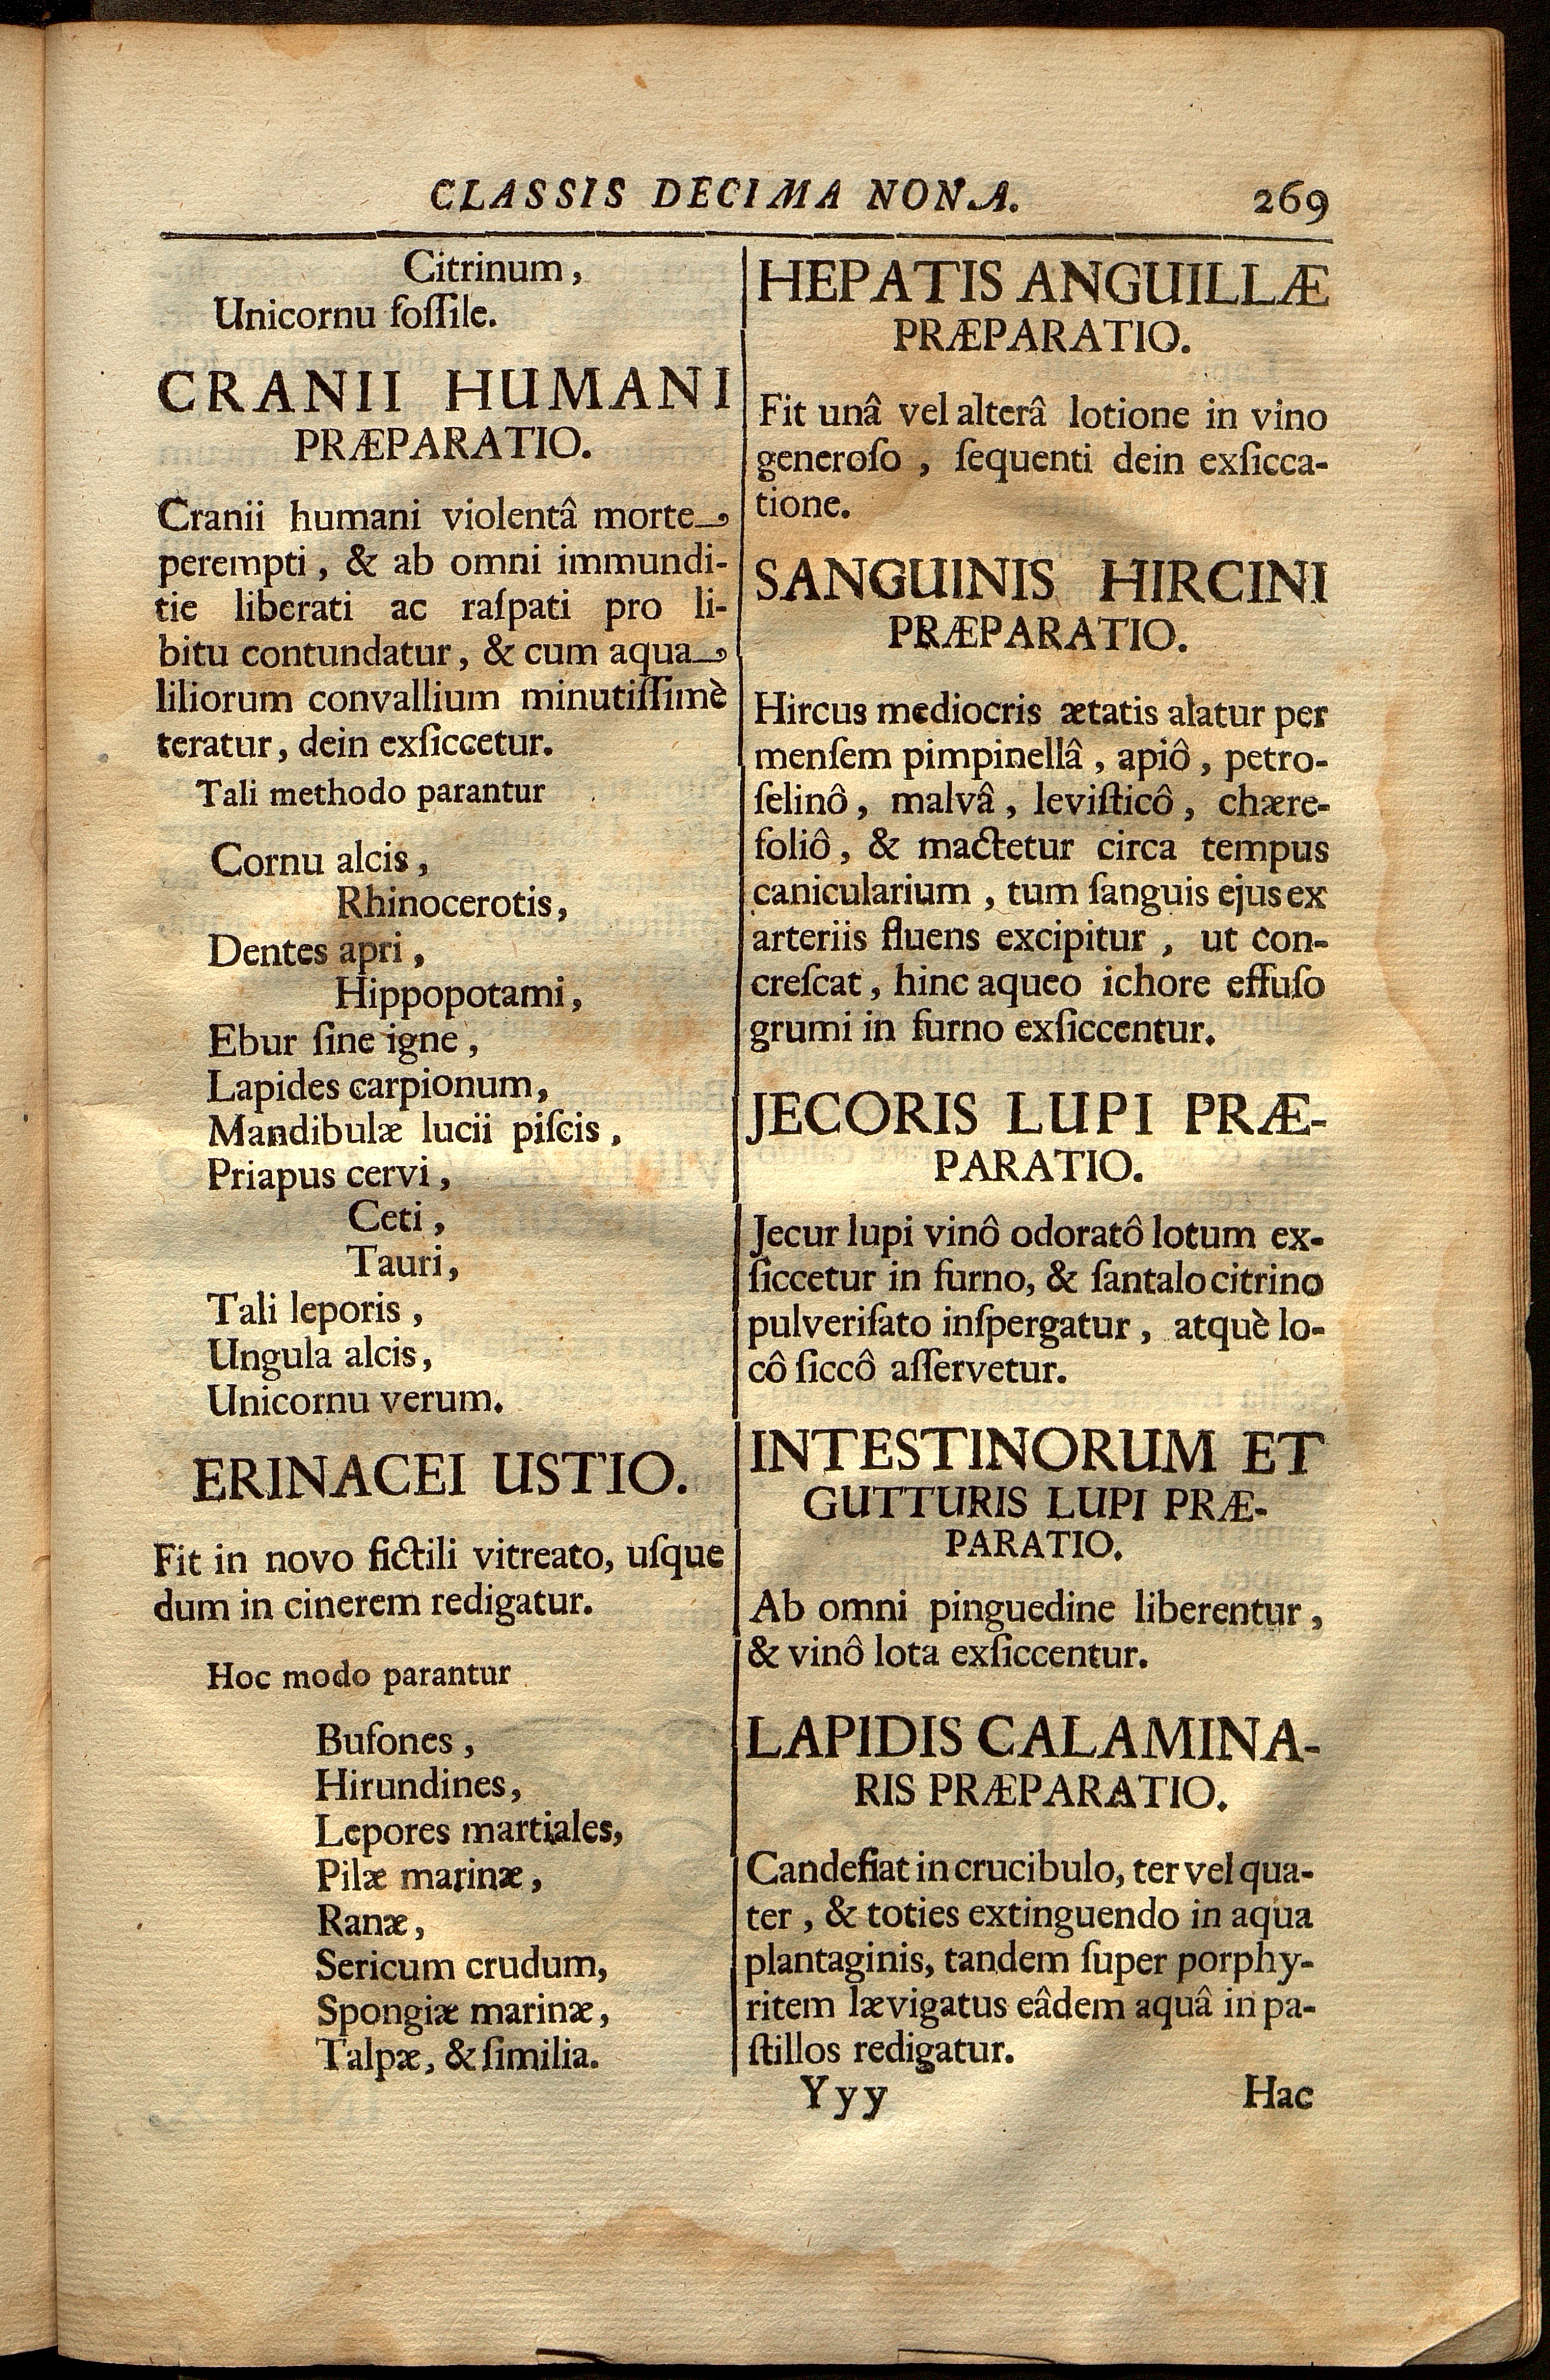 CLASSIS DECIMA NONA. 269
Citrinum,
Unicornu foſſile.
CRANII HUMANI
PRÆPARATIO.
Cranii humani violentâ morte
perempti, & ab omni immundi-
tie liberati ac raſpati pro li-
bitu contundatur, & cum aqua
liliorum convallium minutiſſimè
teratur, dein exſiccetur.
Tali methodo parantur
Cornu alcis,
Rhinocerotis,
Dentes apri,
Hippopotami,
Ebur ſine igne,
Lapides carpionum,
Mandibulæ lucii piſcis,
Priapus cervi,
Ceti,
Tauri,
Tali leporis,
Ungula alcis,
Unicornu verum.
ERINACEI USTIO.
Fit in novo fictili vitreato, uſque
dum in cinerem redigatur.
Hoc modo parantur
Bufones,
Hirundines,
Lepores martiales,
Pilæ marinæ,
Ranæ,
Sericum crudum,
Spongiæ marinæ,
Talpæ, & ſimilia.
HEPATIS ANGUILLÆ
PRÆPARATIO.
Fit unâ vel alterâ lotione in vino
generoſo, ſequenti dein exſicca-
tione.
SANGUINIS HIRCINI
PRÆPARATIO.
Hircus mediocris ætatis alatur per
menſem pimpinellâ, apiô, petro-
ſelinô, malvâ, leviſticô, chære-
foliô, & mactetur circa tempus
canicularium, tum ſanguis ejus ex
arteriis fluens excipitur, ut con-
creſcat, hinc aqueo ichore effuſo
grumi in furno exſiccentur.
JECORIS LUPI PRÆ-
PARATIO.
Jecur lupi vinô odoratô lotum ex-
ſiccetur in furno, & ſantalo citrino
pulveriſato inſpergatur, atquè lo-
cô ſiccô aſſervetur.
INTESTINORUM ET
GUTTURIS LUPI PRÆ-
PARATIO.
Ab omni pinguedine liberentur,
& vinô lota exſiccentur.
LAPIDIS CALAMINA-
RIS PRÆPARATIO.
Candefiat in crucibulo, ter vel qua-
ter, & toties extinguendo in aqua
plantaginis, tandem ſuper porphy-
ritem lævigatus eâdem aquâ in pa-
ſtillos redigatur.
Yyy Hac